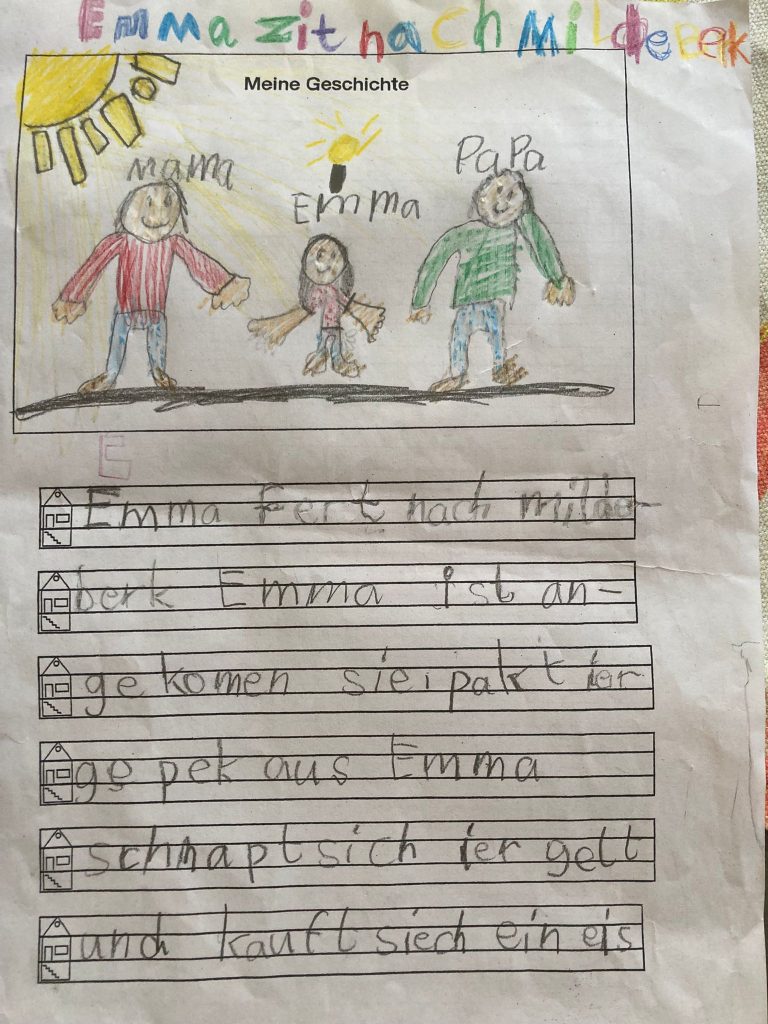 Emma zit nach MildeBerk
Meine Geschichte
Mama
Emma
PaPa
E
Emma Fert nach milde-
berk Emma ist an-
gekomen sie pakt ier
gepek aus Emma
schnapt sich ier gelt
und kauft siech ein eis